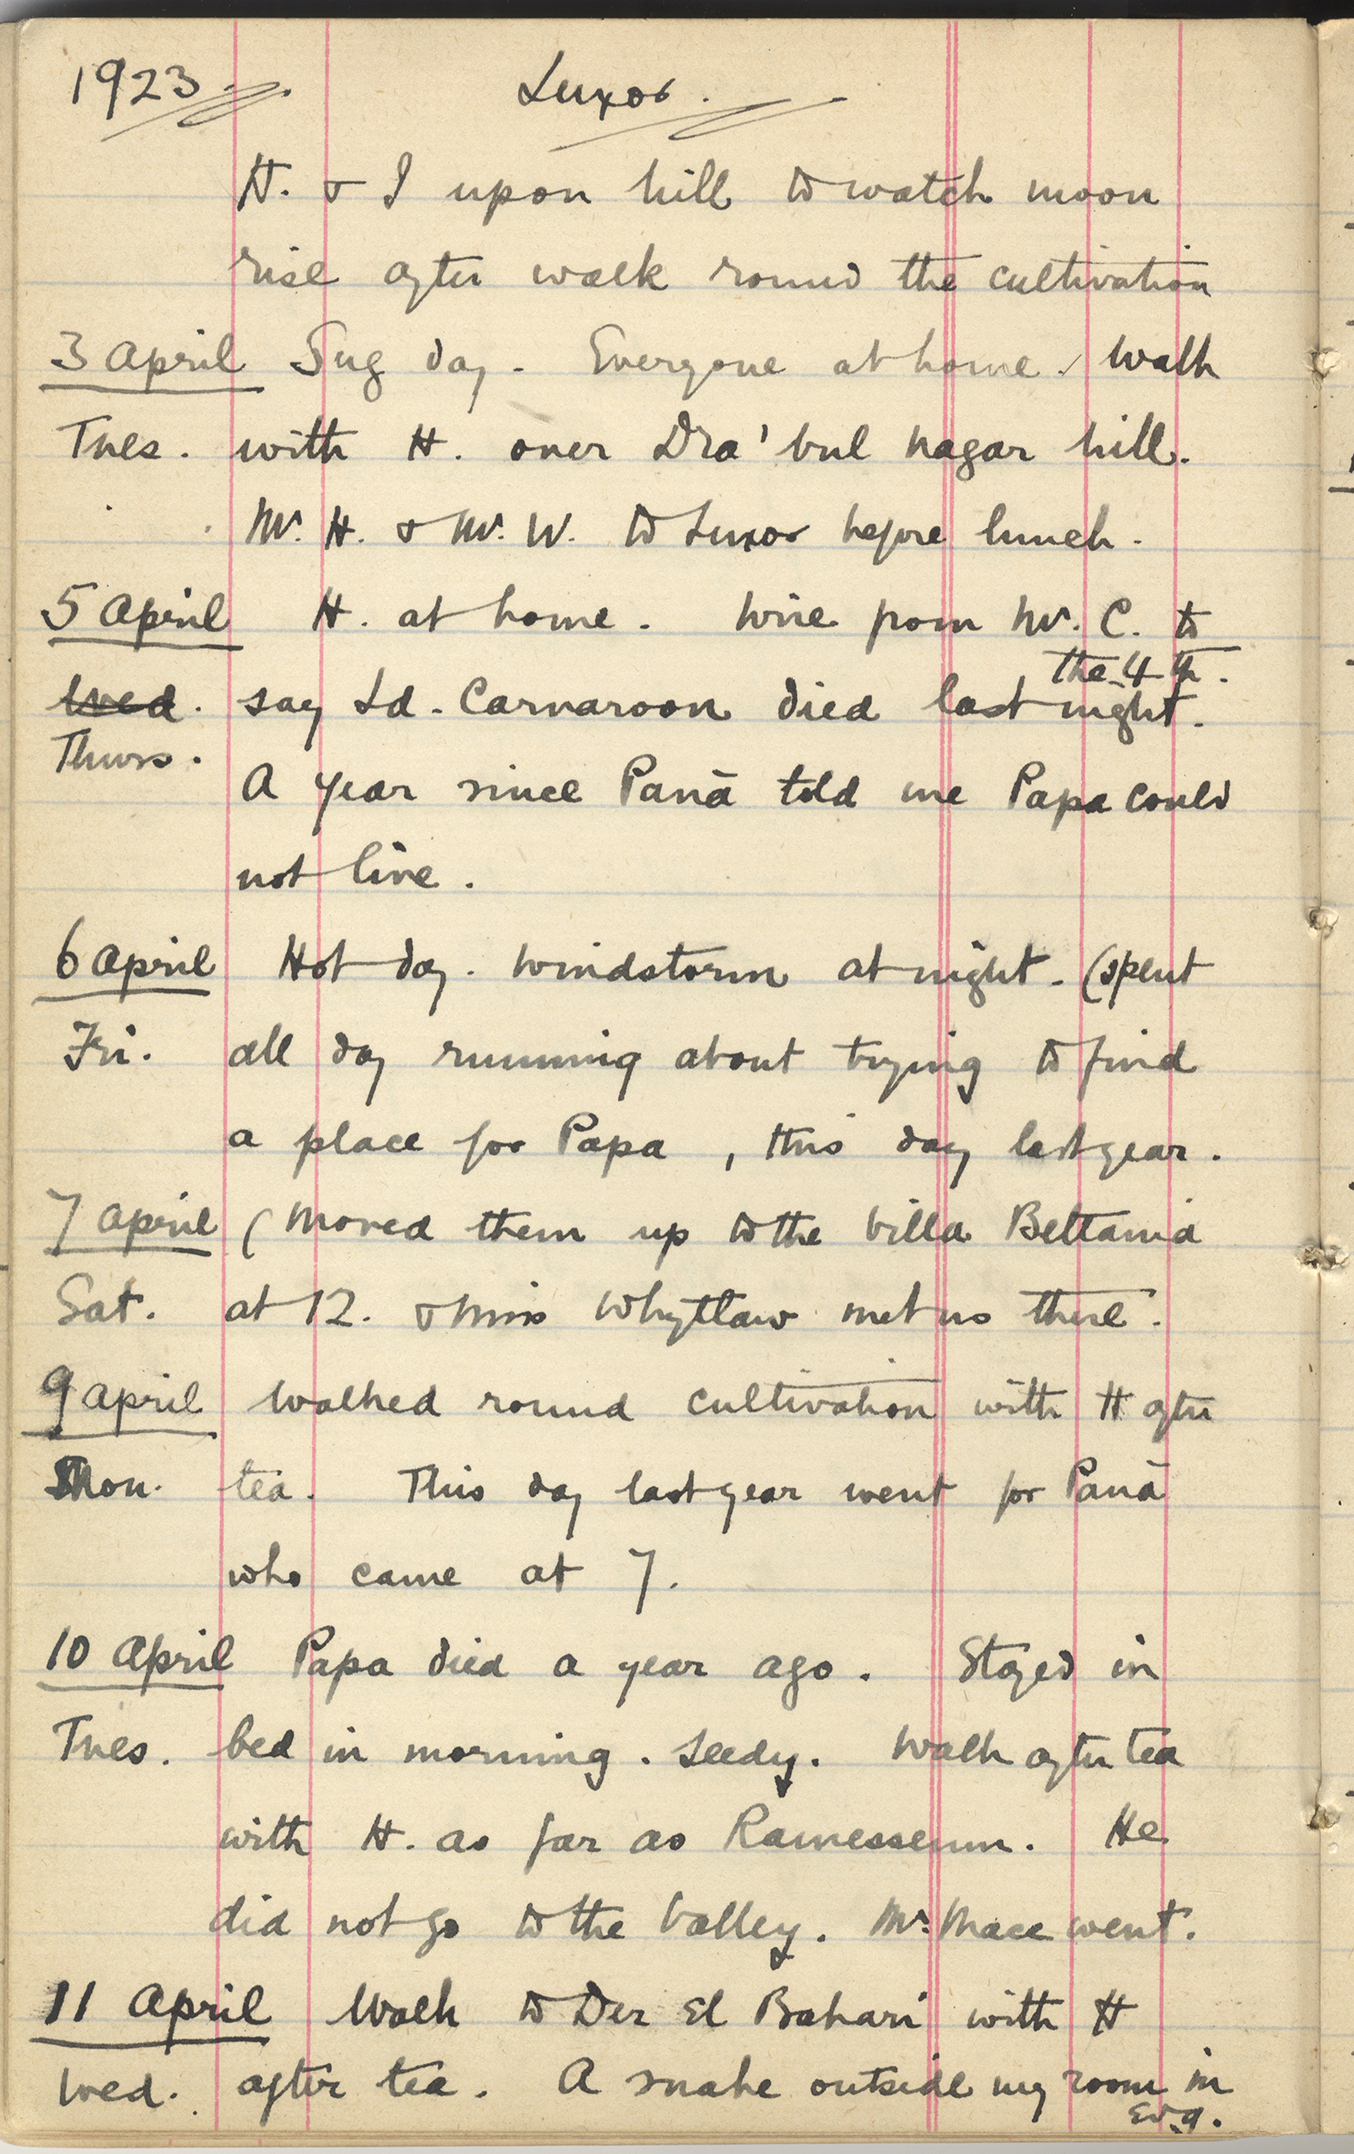 1923. Luxor.
H. & I upon hill to watch moon
rise after walk round the cultivation
3 April Sug day. Everyone at home. Walk
Tues. with H. over Dra' bul nagar hill.
Mr. H. & Mr. W. to Luxor before lunch.
5 April H. at home. Wire from Mr. C. to
the 4th.
Wed. say Ld. Carnaroon died last night.
Thurs.
A year since Panà told me Papa could
not live.
6 April Hot day. Windstorm at night. (Spent
Fri. all day running about trying to find
a place for Papa, this day last year.
7 April (Moved them up to the Villa Bettania
Sat. at 12. & Miss Whytlaw met us there.
9 April Walked round cultivation with H after
Mon. tea. This day last year went for Panà
who came at 7.
10 April Papa died a year ago. Stayed in
Tues. bed in morning. Seedy. Walk after tea
with H. as far as Ramesseum. He
did not go to the Valley. Mr. Mace went.
11 April Walk to Der El Bahari with H
Wed. after tea. A snake outside my room in
Evg.